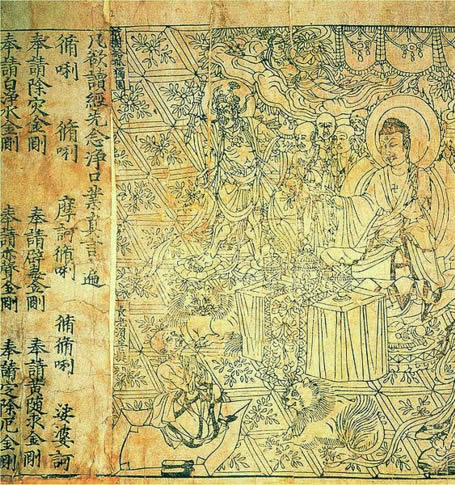 祇樹給孤獨園
長老須菩提
凡欲讀經先念淨口業真言一遍
脩唎 脩唎 摩訶脩唎 脩脩唎 娑婆訶
奉請除災金剛 奉請辟毒金剛 奉請黃隨求金剛
奉請白淨水金剛 奉請赤聲金剛 奉請定除厄金剛